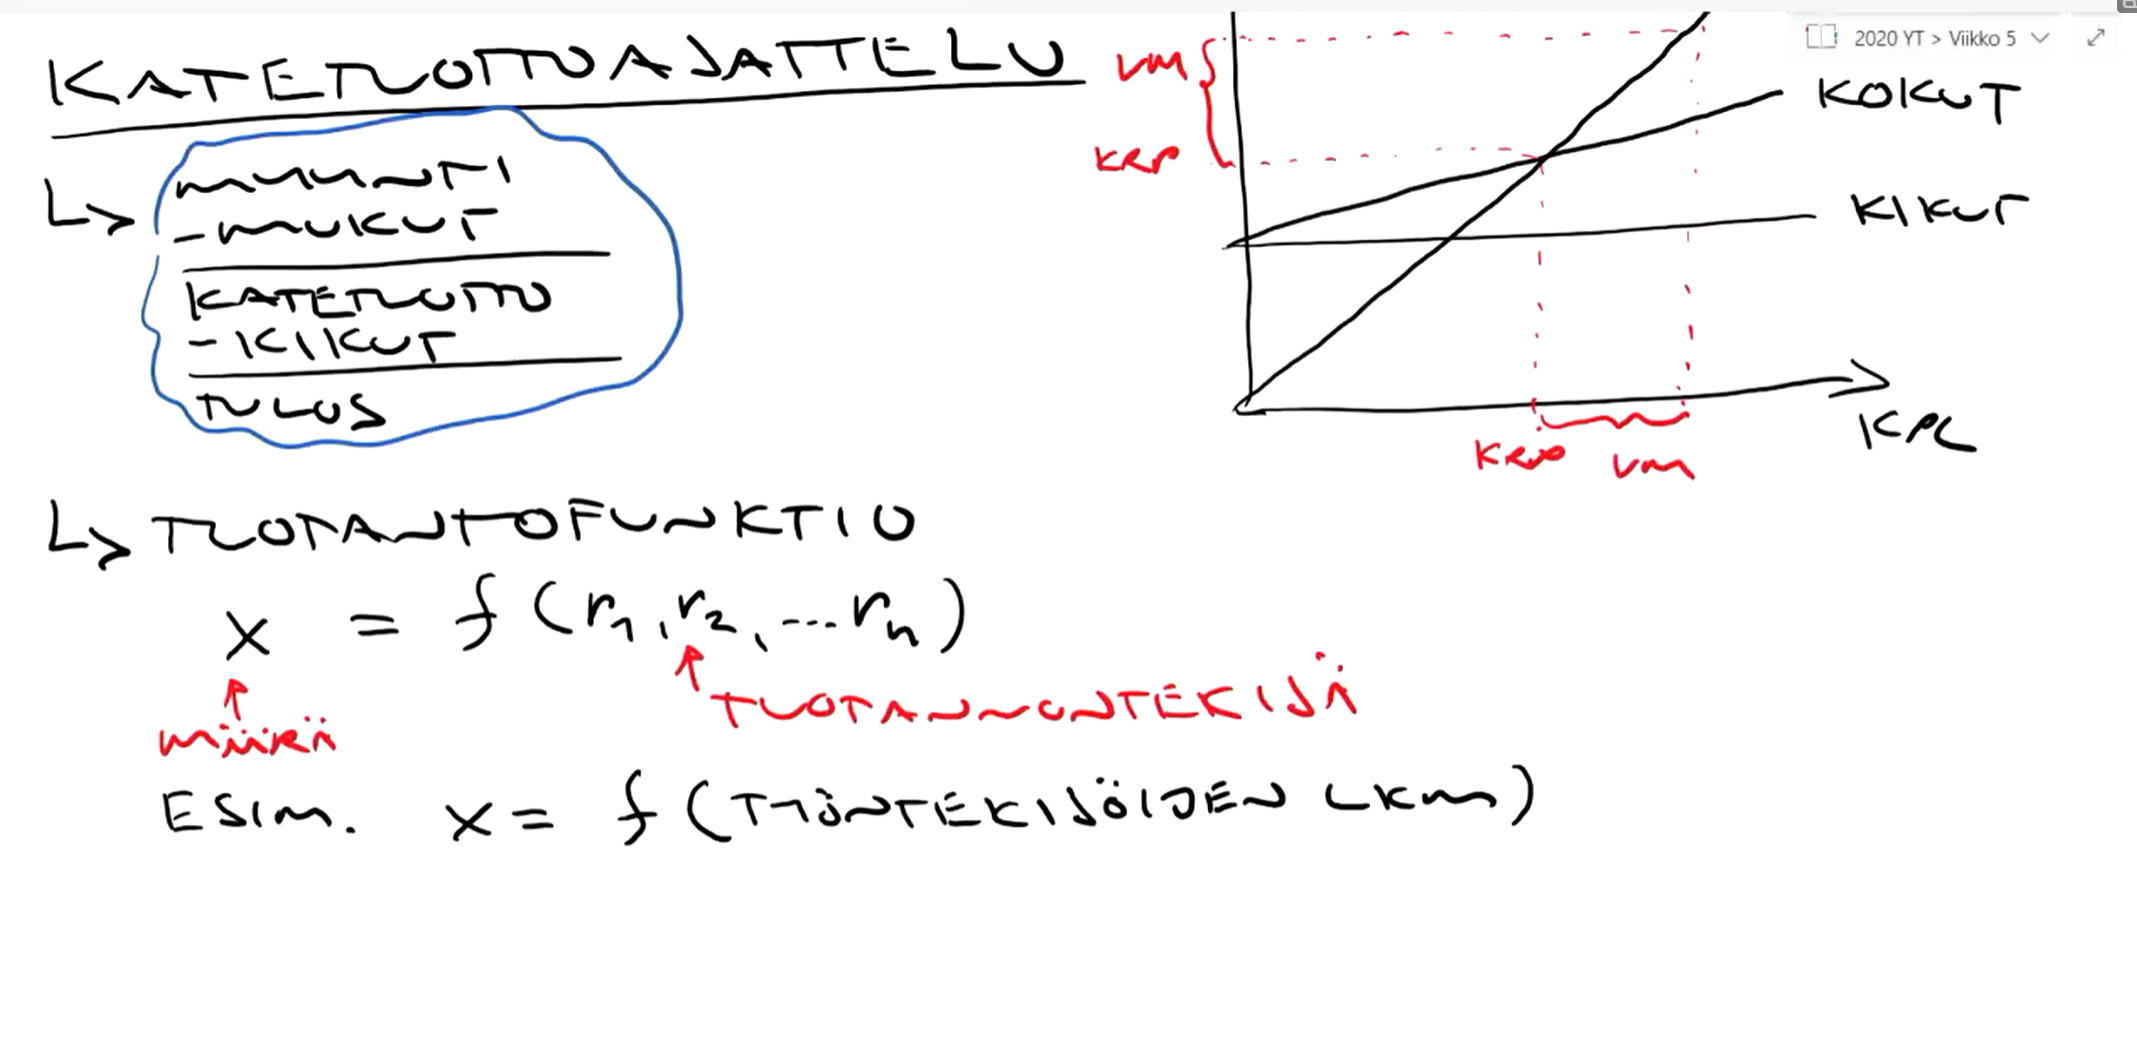 KATETUOTTOAJATTELU
↳ MYYNTI
- MUKUT
KATETUOTTO
- KIKUT
TULOS
2020 YT > Viikko 5
VM
KRP
KOKUT
KIKUT
KPL
KRP VM
↳ TUOTANTOFUNKTIO
x = f (r₁, r₂, ... rₙ)
MÄÄRÄ
TUOTANNONTEKIJÄ
ESIM. x = f (TYÖNTEKIJÖIDEN LKM)